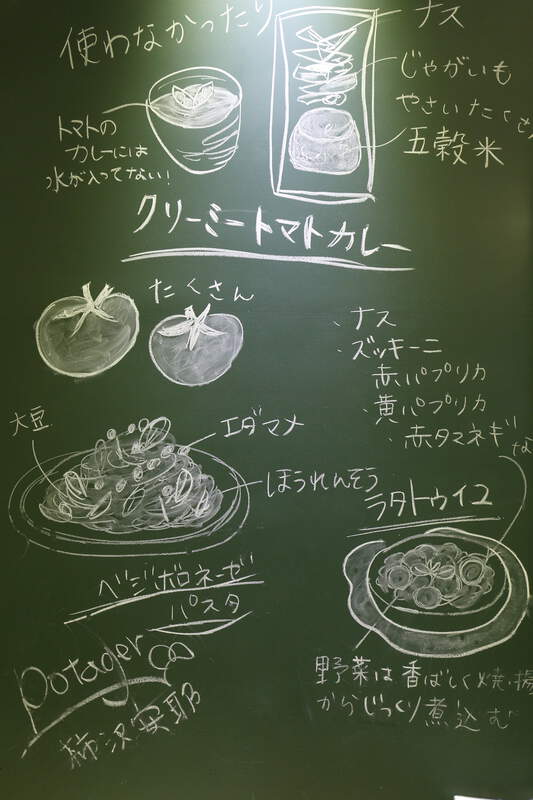 使わなかったり
ナス
じゃがいも
やさいたくさ
五穀米
トマトの
カレーには
水が入ってない!
クリーミートマトカレー
たくさん
・ナス
・ズッキーニ
赤パプリカ
・黄パプリカ
・赤タマネギ
な
大豆
エダマメ
ほうれんそう
ラタトゥイユ
ベジボロネーゼ
パスタ
potager
柿沢安耶
野菜は香ばしく焼・揚
からじっくり煮込む